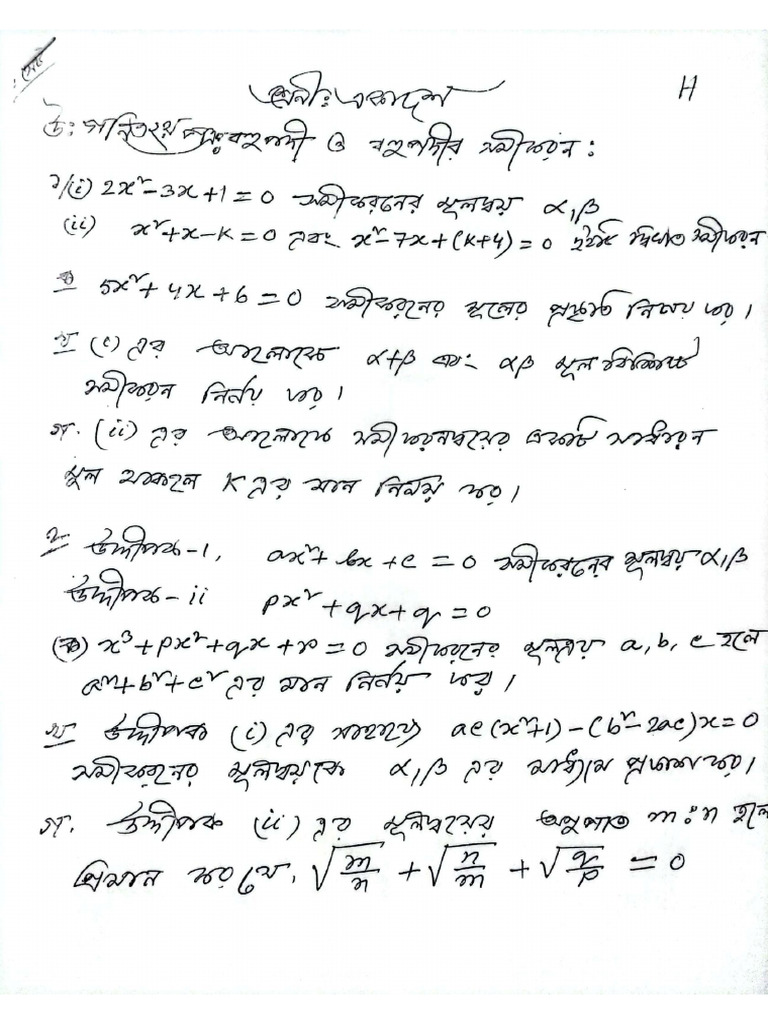 সেট
শ্রেণীঃ একাদশ
H
উঃ গনিত ২য় পত্রঃ বহুপদী ও বহুপদীর সমীকরন :
১/(i) 2x² - 3x + 1 = 0 সমীকরনের মূলদ্বয় α, β
(ii) x² + x - K = 0 এবং x² - 7x + (K+4) = 0 দুইটি দ্বিঘাত সমীকরন
ক 5x² + 4x + 6 = 0 সমীকরনের মূলের প্রকৃতি নির্ণয় কর।
খ (i) এর আলোকে α+β এবং αβ মূল বিশিষ্ট
সমীকরন নির্নয় কর।
গ. (ii) এর আলোকে সমীকরনদ্বয়ের একটি সাধারন
মূল থাকলে K এর মান নির্নয় কর।
২ উদ্দীপক-1, ax² + bx + c = 0 সমীকরনের মূলদ্বয় α, β
উদ্দীপক-ii px² + qx + q = 0
(ক) x³ + px² + qx + r = 0 সমীকরনের মূলত্রয় a, b, c হলে
a² + b² + c² এর মান নির্নয় কর।
খ উদ্দীপক (i) এর সাহায্যে ac(x²+1) - (b² - 2ac)x = 0
সমীকরনের মূলদ্বয়কে α, β এর মাধ্যমে প্রকাশ কর।
গ. উদ্দীপক (ii) এর মূলদ্বয়ের অনুপাত m : n হলে
প্রমান কর যে, √(m/n) + √(n/m) + √(q/p) = 0